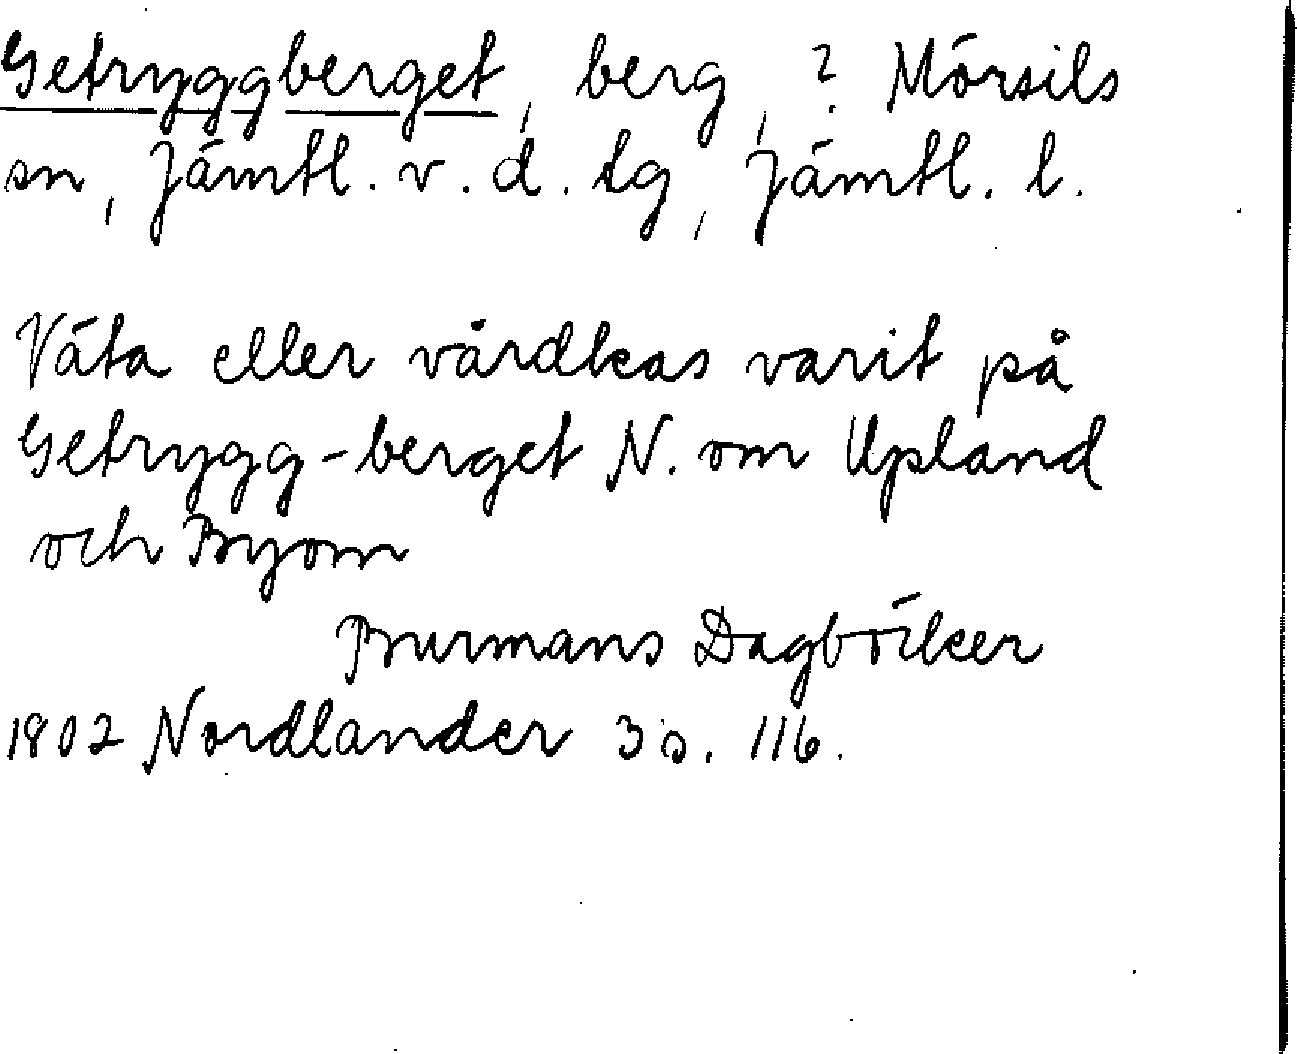 Getryggberget, berg, ? Mörsils
sn, Jämtl. v. d. tg, Jämtl. l.
Väta eller vårdkas varit på
Getrygg-berget N. om Upland
och Byom
Burmans Dagböcker
1802 Nordlander 3 s. 116.